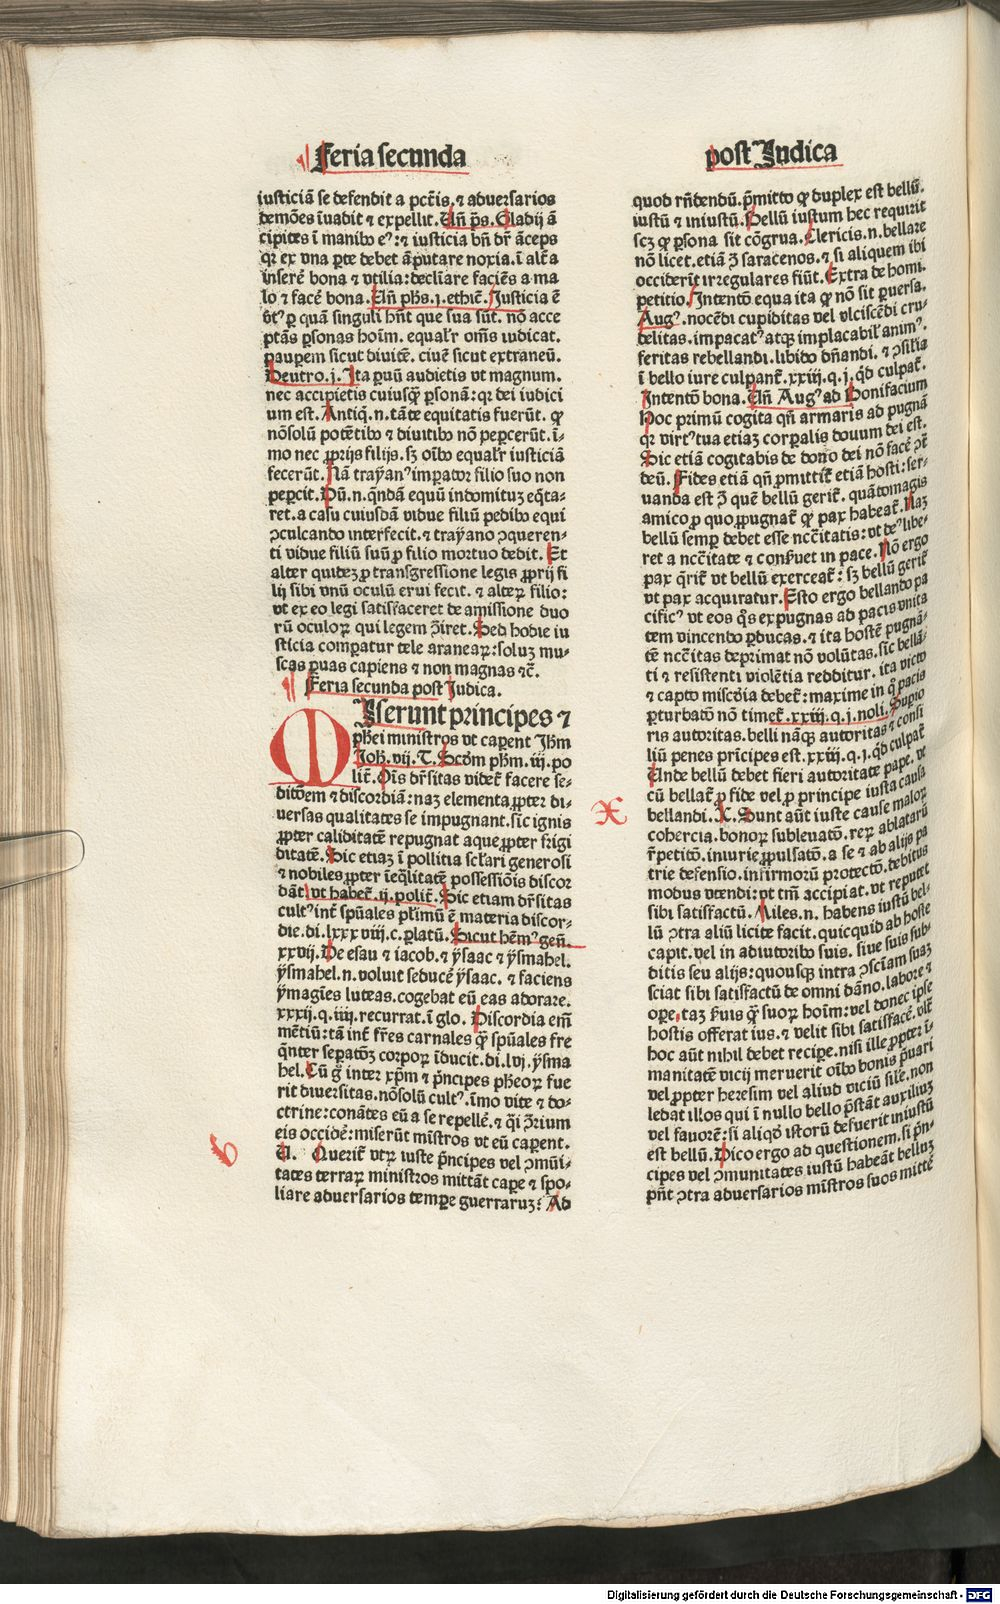 Feria secunda
iusticiā se defendit a pct̄is. ⁊ aduersarios
demōes īuadit ⁊ expellit. Un̄ p̄s. Gladij ā
cipites ī manibꝰ eꝰ: ⁊ iusticia bn̄ dr̄ anceps
qꝛ ex vna ꝑte debet āputare noxia. ī alt̄a
inserē bona ⁊ vtilia: declīare faciēs a ma
lo ⁊ facē bona. Un̄ ph̄s. j. ethic̄. Justicia ē
ꝑ quā singuli hn̄t que sua sūt. nō acce
ptās ꝑsonas hoīm. equalr̄ om̄s iudicat.
pauꝑem sicut diuitē. ciuē sicut extraneū.
Deutro. j. Ita ꝑuū audietis vt magnum.
nec accipietis cuiusqꝫ ꝑsonā: qꝛ dei iudici
um est. Antiq̄. n. tāte equitatis fuerūt. ꝙ
nōsolū potētibꝰ ⁊ diuitibꝰ nō peꝑcerūt. ī-
mo nec ꝓprijs filijs. sꝫ oībꝰ equalr̄ iusticiā
fecerūt. Nā trayanꝰ imꝑator filio suo non
peꝑcit. Dū. n. q̄ndā equū indomituꝫ eq̄ta-
ret. a casu cuiusdā vidue filiū pedibꝰ equi
ↄculcando interfecit. ⁊ trayano ↄqueren-
ti vidue filiū suū ꝓ filio mortuo dedit. Et
alter quideꝫ ꝓ transgressione legis ꝓprij fi
lij sibi vnū oculū erui fecit. ⁊ alteꝝ filio:
vt ex eo legi satisfaceret de amissione duo
rū oculoꝝ qui legem ↄ̄iret. Sed hodie iu
sticia comꝑatur tele araneaꝝ: soluꝫ mu-
scas ꝑuas capiens ⁊ non magnas ⁊c̄.
Feria secunda post Judica.
MIserunt principes ⁊
ph̄ei ministros vt caꝑent Jhm̄
Joh. vij. T. Scdm̄ ph̄m. iij. po
lit̄. Oīs dr̄sitas videt̄ facere se-
ditōem ⁊ discordiā: naꝫ elementa ꝓpter di-
uersas qualitates se impugnant. sic ignis
ꝓpter caliditatē repugnat aque ꝓpter frigi
ditatē. Sic etiaꝫ ī pollitia sc̄lari generosi
⁊ nobiles ꝓpter ieq̄litatē possessiōis discor
dāt. vt habet̄. ij. polit̄. Sic etiam dr̄sitas
cultꝰ int̄ spūales plīmū ē materia discor-
die. di. lxxxviij. c. ꝑlatū. Sicut hēmꝰ gen̄.
xxvij. De esau ⁊ iacob. ⁊ ysaac ⁊ ysmahel.
ysmahel. n. voluit seducē ysaac. ⁊ faciens
ymagīes luteas. cogebat eū eas adorare.
xxxij. q. iiij. recurrat. ī glo. Discordia em̄
mētiū: tā int̄ fr̄es carnales q̄ꝫ spūales fre
q̄nter seꝑatōꝫ corpoꝝ īducit. di. lvj. ysma
hel. Cū gͦ inter xp̄m ⁊ p̄ncipes ph̄eoꝝ fue
rit diuersitas. nōsolū cultꝰ. īmo vite ⁊ do-
ctrine: conātes eū a se repellē. ⁊ q̄i ↄ̄rium
eis occidē: miserūt mīstros vt eū caꝑent.
U. Querit̄ vtꝝ iuste p̄ncipes vel ↄmūi-
tates terraꝝ ministros mittāt caꝑe ⁊ spo-
liare aduersarios temꝑe guerraruꝫ: Ad
post Judica
quod rn̄dendū. p̄mitto ꝙ duplex est bellū.
iustū ⁊ iniustū. Bellū iustum hec requirit
scꝫ ꝙ ꝑsona sit cōgrua. Clericis. n. bellare
nō licet. etiā ↄ̄ saracenos. ⁊ si aliquem ibi
occiderīt irregulares fiūt. Extra de homi.
petitio. Intentō equa ita ꝙ nō sit ꝑuersa.
Augꝰ. nocēdi cupiditas vel vlciscēdi cru-
delitas. impacatꝰ atqꝫ implacabil̄ animꝰ.
feritas rebellandi. libido dn̄andi. ⁊ ↄsilia
ī bello iure culpant̄. xxiij. q. j. qd̄ culpat̄.
Intentō bona. Un̄ Augꝰ ad Bonifacium
Hoc primū cogita qn̄ armaris ad pugnā
qꝛ virtꝰ tua etiaꝫ corꝑalis donum dei est.
Sic etiā cogitabis de dono dei nō facē ↄ̄
deū. Fides etiā qn̄ ꝓmittit̄ etiā hosti: ser-
uanda est ↄ̄ quē bellū gerit̄. quātomagis
amico ꝓ quo ꝓpugnat̄ ꝙ pax habeat̄. Naꝫ
bellū semꝑ debet esse nccītatis: vt deꝰ libe-
ret a nccītate ⁊ conꝑuet in pace. Nō ergo
pax q̄rit̄ vt bellū exerceat̄: sꝫ bellū gerit̄
vt pax acquiratur. Esto ergo bellando pa
cificꝰ vt eos q̄s expugnas ad pacis vnita
tem vincendo ꝑducas. ⁊ ita hostē pugnā-
tē nccītas deprimat nō volūtas. sic bellā-
ti ⁊ resistenti violētia redditur. ita victo
⁊ capto misc̄dia debet̄: maxime in qͦ pacis
ꝑturbatō nō timet̄. xxiij. q. j. noli. Supio
ris autoritas. belli nāqꝫ autoritas ⁊ consi
liū penes prīcipes est. xxiij. q. j. qd̄ culpat̄
Unde bellū debet fieri autoritate pape. vt
cū bellat̄ ꝓ fide vel ꝓ principe iusta causa
bellandi. X. Sunt aūt iuste cause maloꝝ
cohercia. bonoꝝ subleuatō. reꝝ ablatarū
r̄petitō. iniurie ꝓpulsatō. a se ⁊ ab alijs pa
trie defensio. infirmorū protectō. debitus
modus vtendi: vt tm̄ accipiat. vt reputet
sibi satisfactū. Miles. n. habens iustū bel-
lū ↄtra aliū licite facit. quicquid ab hoste
capit. vel in adiutoribꝰ suis. siue suis sub-
ditis seu alijs: quousqꝫ intra ↄscīam suaꝫ
sciat sibi satisfactū de omni dāno. labore ⁊
oꝑe. taꝫ ẜuis qꝫ suoꝝ hoīm: vel donec ipse
hostis offerat ius. ⁊ velit sibi satisfacē. vlt̄
hoc aūt nihil debet reciꝑe. nisi ille ꝓpter ī-
manitatē vicij meruerit oībꝰ bonis p̄uari
vel ꝓpter heresim vel aliud viciū sil̄e. non
ledat illos qui ī nullo bello p̄stāt auxiliuꝫ
vel fauorē: si aliqͦd istorū defuerit iniustū
est bellū. Dico ergo ad questionem. si p̄n-
cipes vel ↄmunitates iustū habeāt belluꝫ
pn̄t ↄtra aduersarios mīstros suos mittē
X
Digitalisierung gefördert durch die Deutsche Forschungsgemeinschaft - DFG